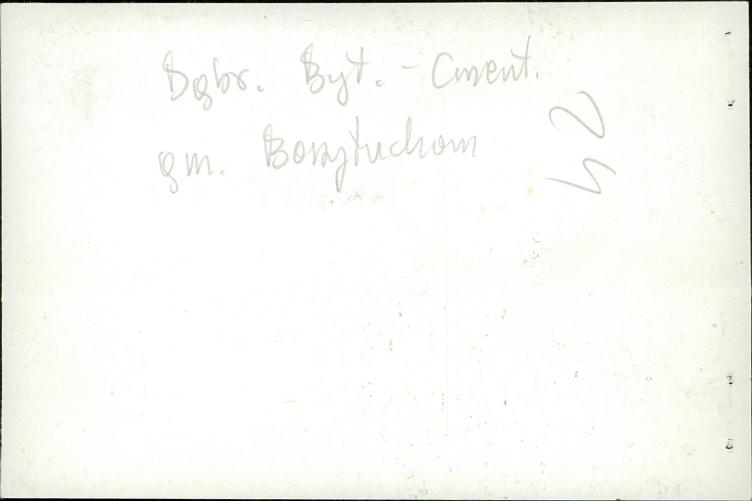 Dąbr. Byt. - Cment.
gm. Borzytuchom
42